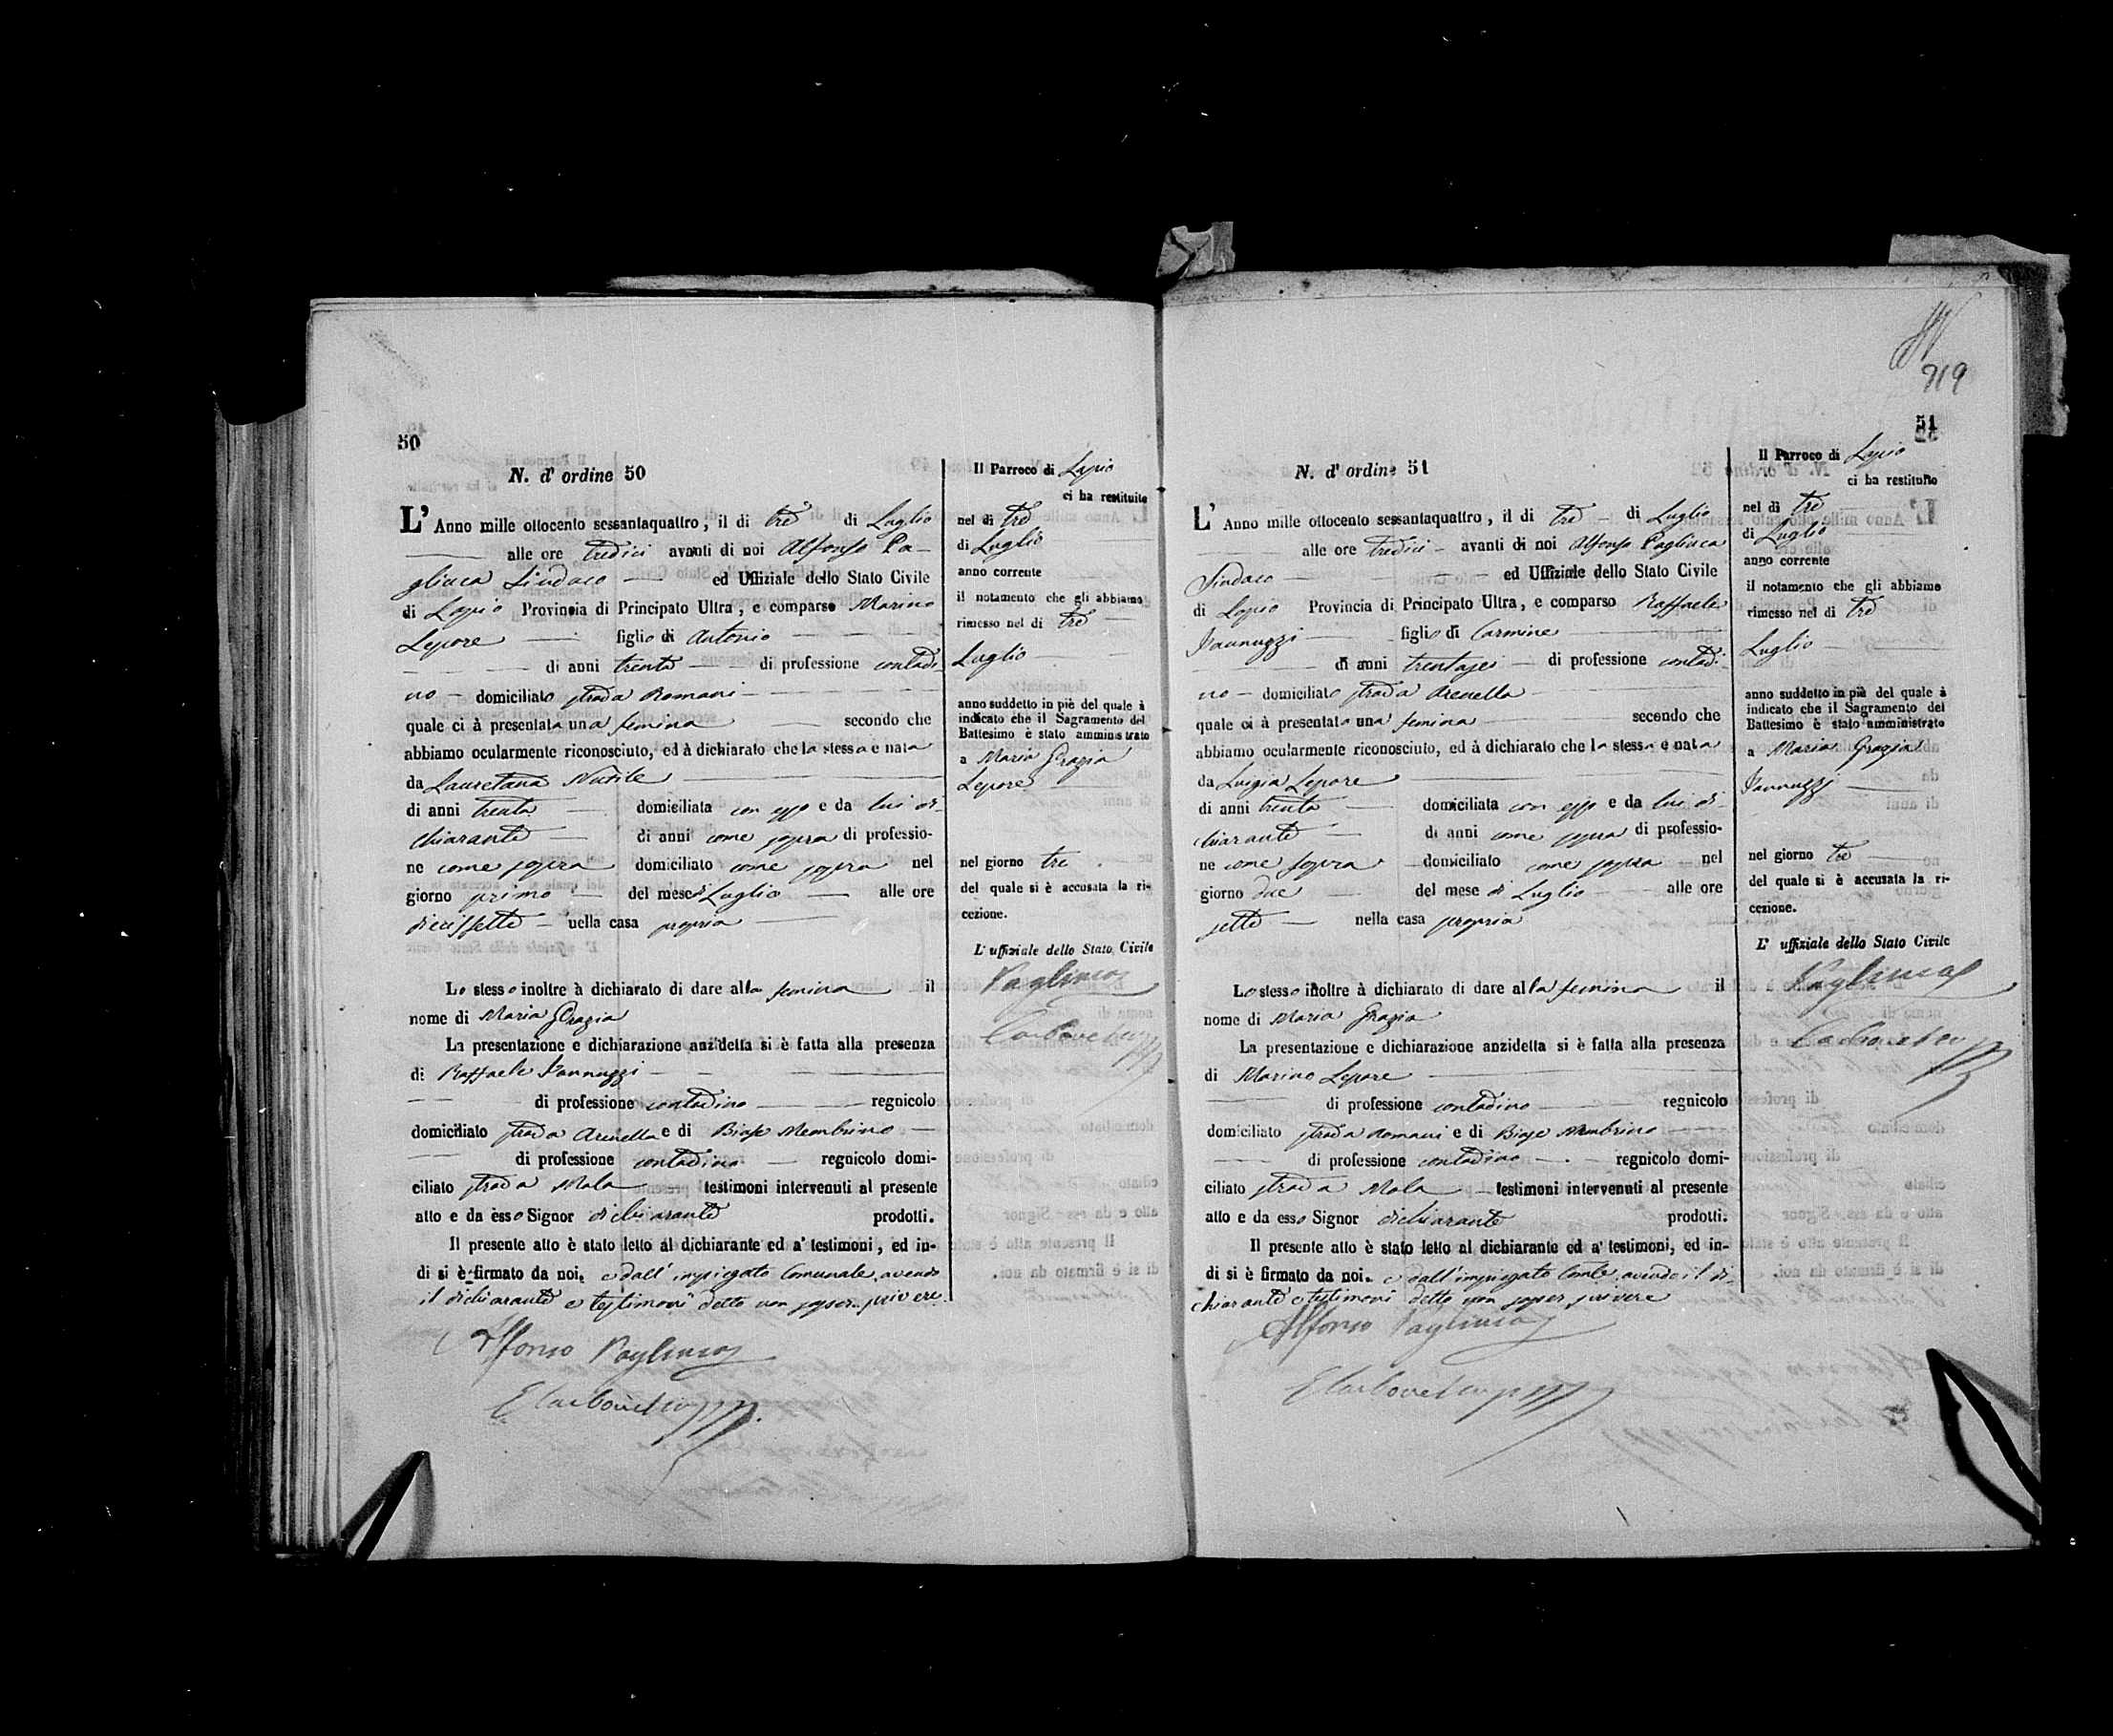 50
N. d' ordine 50
L' Anno mille ottocento sessantaquattro, il di tre di Luglio
alle ore tredici avanti di noi Alfonso Pa-
gliuca Sindaco ed Uffiziale dello Stato Civile
di Lapio Provincia di Principato Ultra, e comparso Marino
Lepore figlio di Antonio
di anni trenta di professione contadi
no domiciliato strada Romani
quale ci à presentata una femina secondo che
abbiamo ocularmente riconosciuto, ed à dichiarato che la stessa e nata
da Lauretana Nutile
di anni trenta domiciliata con esso e da lui di-
chiarante di anni come sopra di professio-
ne come sopra domiciliato come sopra nel
giorno primo del mese di Luglio alle ore
diecissette nella casa propria
Lo stesso inoltre à dichiarato di dare alla femina il
nome di Maria Grazia
La presentazione e dichiarazione anzidetta si è fatta alla presenza
di Raffaele Iannuzzi
di professione contadino regnicolo
domiciliato strada Arenella e di Biase Membrino
di professione contadino regnicolo domi-
ciliato strada Mala testimoni intervenuti al presente
atto e da esso Signor dichiarante prodotti.
Il presente atto è stato letto al dichiarante ed a' testimoni, ed in-
di si è firmato da noi. e dall' impiegato Comunale, avendo
il dichiarante e testimoni detto non saper scrivere
Alfonso Pagliuca
Il Parroco di Lapio
ci ha restituito
nel di tre
di Luglio
anno corrente
il notamento che gli abbiamo
rimesso nel di tre
Luglio
anno suddetto in piè del quale à
indicato che il Sagramento del
Battesimo è stato amministrato
a Maria Grazia
Lepore
nel giorno tre
del quale si è accusata la ri-
cezione.
L' uffiziale dello Stato Civile
Pagliuca
919
51
N. d' ordine 51
L' Anno mille ottocento sessantaquattro, il di tre di Luglio
alle ore tredici avanti di noi Alfonso Pagliuca
Sindaco ed Uffiziale dello Stato Civile
di Lapio Provincia di Principato Ultra, e comparso Raffaele
Iannuzzi figlio di Carmine
di anni trentasei di professione contadi
no domiciliato strada Arenella
quale ci à presentato una femina secondo che
abbiamo ocularmente riconosciuto, ed à dichiarato che la stessa e nata
da Luigia Lepore
di anni trenta domiciliata con esso e da lui di-
chiarante di anni come sopra di professio-
ne come sopra domiciliato come sopra nel
giorno due del mese di Luglio alle ore
sette nella casa propria
Lo stesso inoltre à dichiarato di dare alla femina il
nome di Maria Grazia
La presentazione e dichiarazione anzidetta si è fatta alla presenza
di Marino Lepore
di professione contadino regnicolo
domiciliato strada Romani e di Biase Membrino
di professione contadino regnicolo domi-
ciliato strada Mala testimoni intervenuti al presente
atto e da esso Signor dichiarante prodotti.
Il presente atto è stato letto al dichiarante ed a' testimoni, ed in-
di si è firmato da noi. e dall' impiegato Comle, avendo il di-
chiarante e testimoni detto non saper scrivere
Alfonso Pagliuca
Il Parroco di Lapio
ci ha restituito
nel di tre
di Luglio
anno corrente
il notamento che gli abbiamo
rimesso nel di tre
Luglio
anno suddetto in piè del quale à
indicato che il Sagramento del
Battesimo è stato amministrato
a Maria Grazia
Iannuzzi
nel giorno tre
del quale si è accusata la ri-
cezione.
L' uffiziale dello Stato Civile
Pagliuca